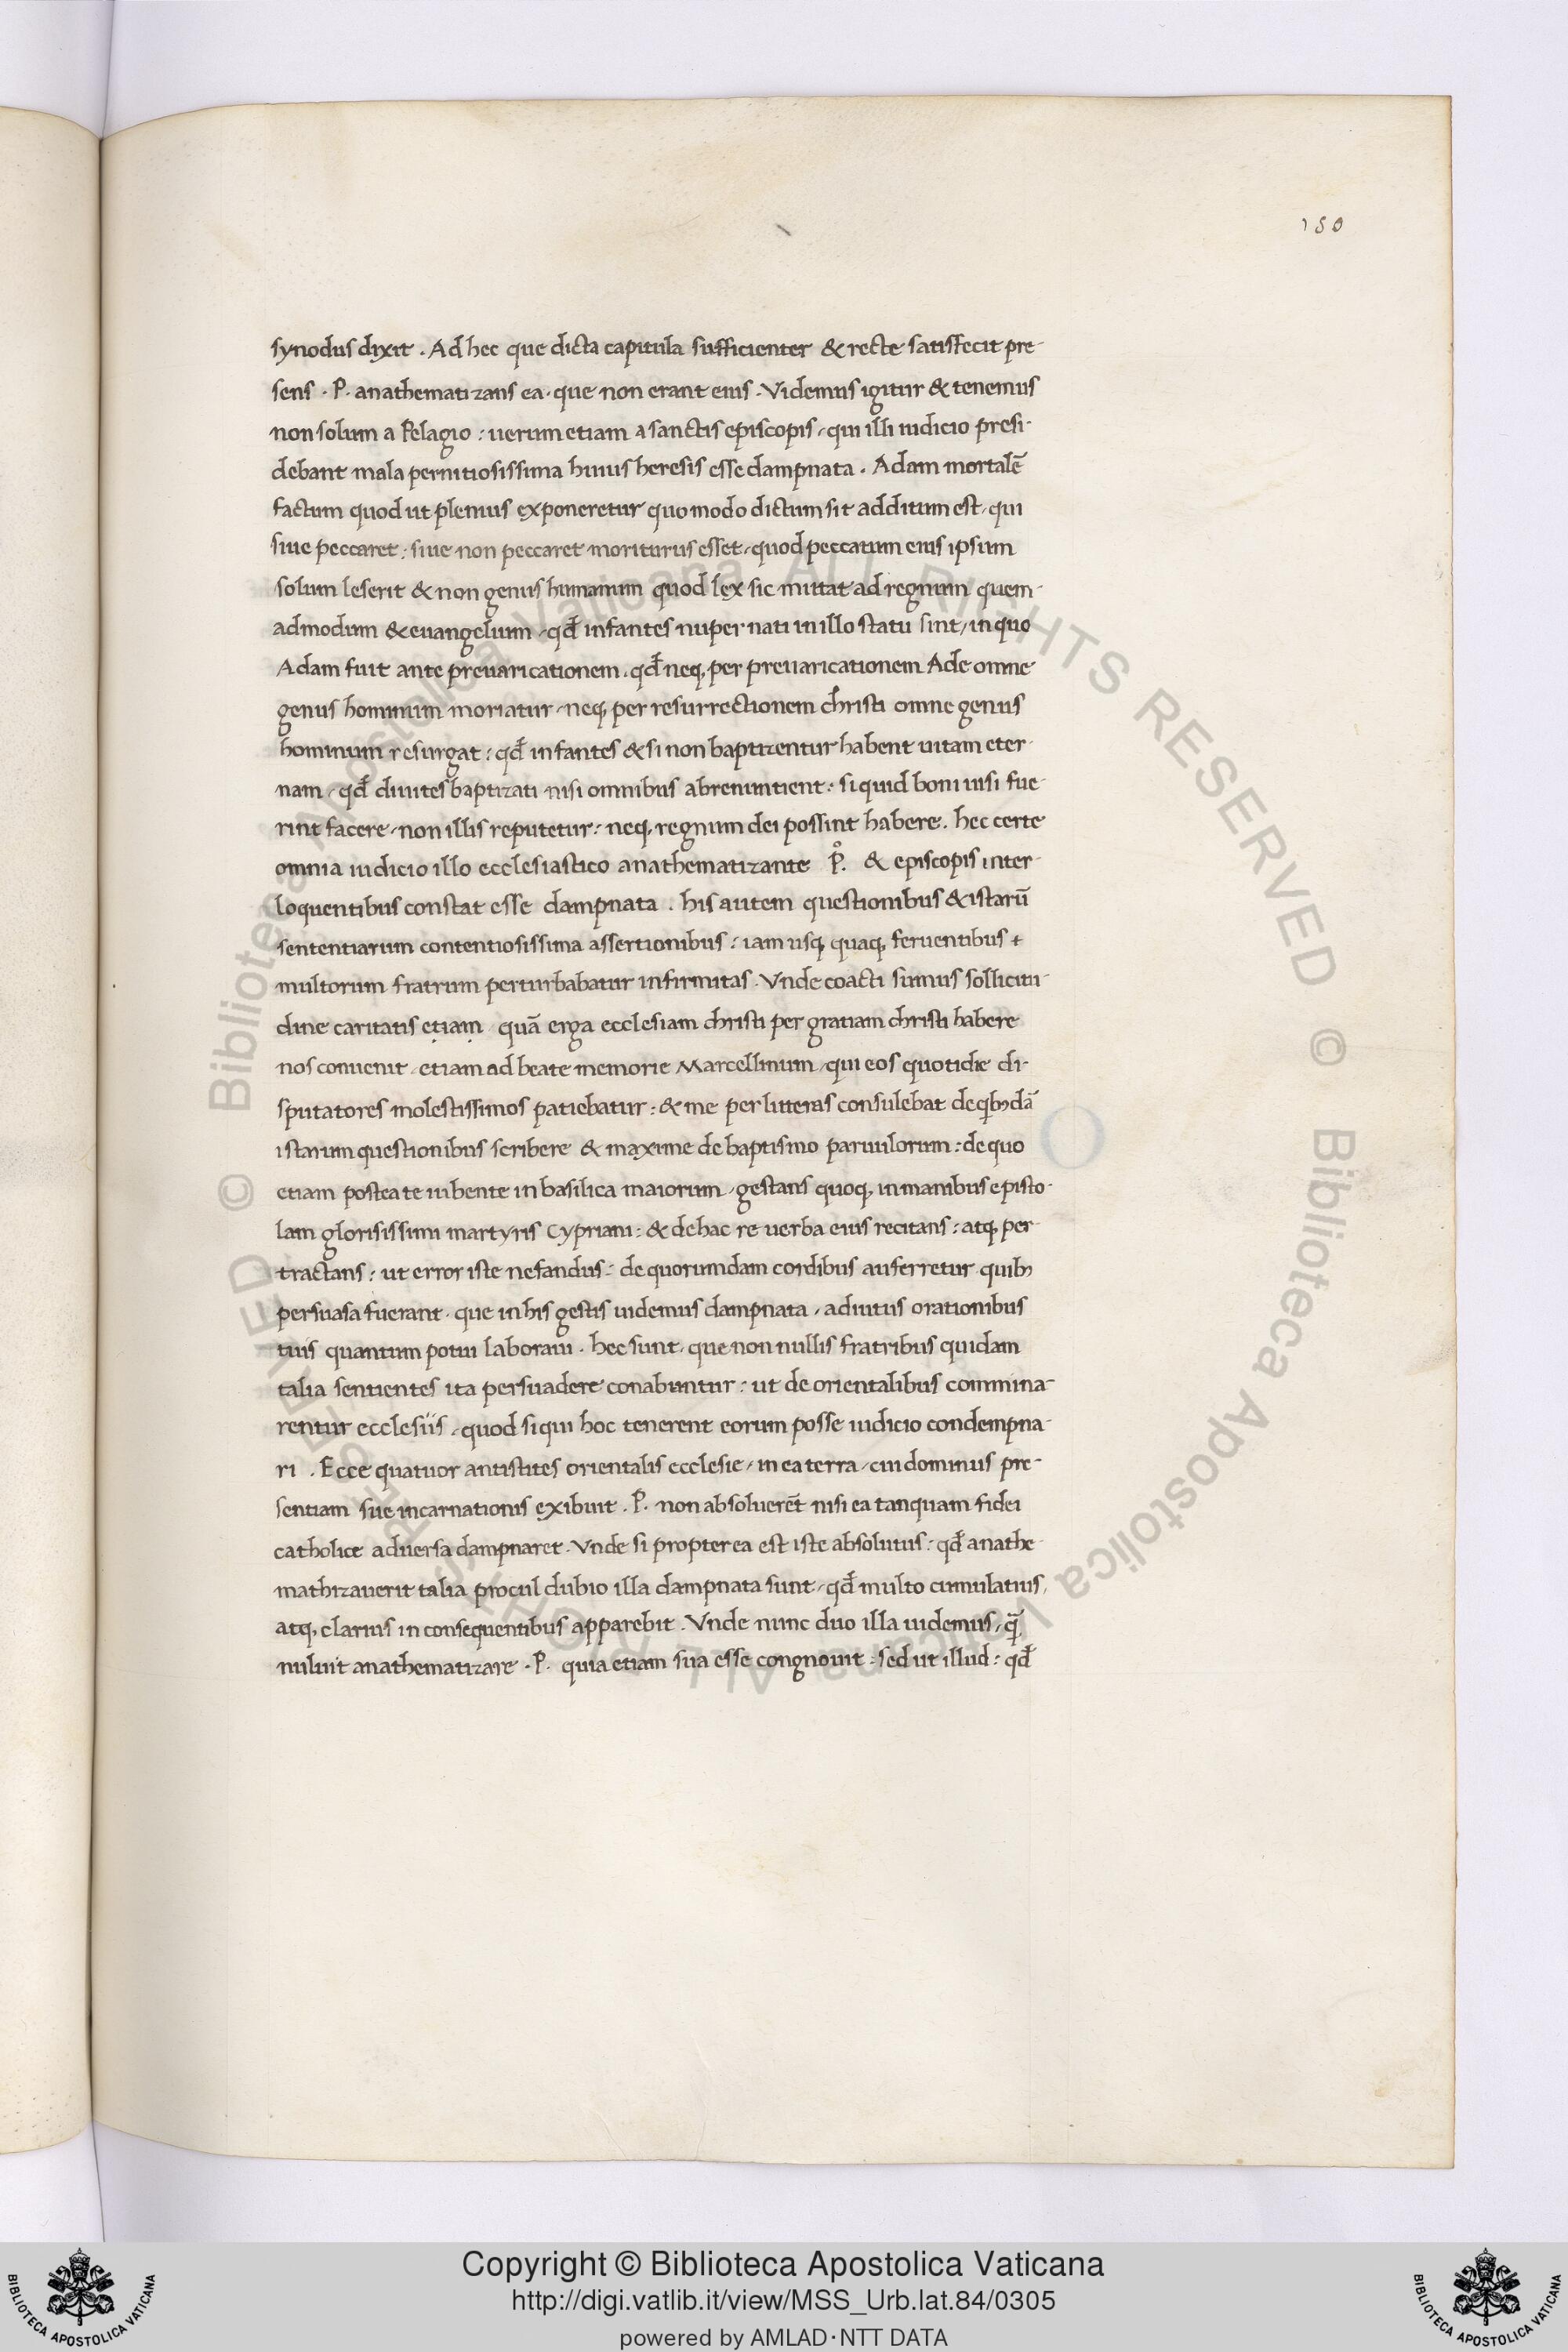 150
synodus dixit . Ad hec que dicta capitula sufficienter & recte satisfecit pre-
sens . P. anathematizans ea . que non erant eius . Videmus igitur & tenemus
non solum a Pelagio : uerum etiam a sanctis episcopis , qui illi iudicio presi-
debant mala pernitiosissima huius heresis esse dampnata . Adam mortalē
factum quod ut plenius exponeretur quomodo dictum sit additum est , qui
siue peccaret : siue non peccaret moriturus esset , quod peccatum eius ipsum
solum leserit & non genus humanum quod lex sic mittat ad regnum quem-
admodum & euangelium , qđ infantes nuper nati in illo statu sint , in quo
Adam fuit ante preuaricationem . qđ neq, per preuaricationem Ade omne
genus hominum moriatur , neq, per resurrectionem christi omne genus
hominum resurgat : qđ infantes & si non baptizentur habent uitam eter-
nam , qđ diuites baptizati nisi omnibus abrenuntient : si quid boni uisi fue-
rint facere , non illis reputetur : neq, regnum dei possint habere . hec certe
omnia iudicio illo ecclesiastico anathematizante P°. & episcopis inter-
loquentibus constat esse dampnata . his autem questionibus & istarū
sententiarum contentiosissima assertionibus : iam usq, quaq, feruentibus +
multorum fratrum perturbabatur infirmitas . Vnde coacti sumus sollicitu-
dine caritatis etiam quā erga ecclesiam christi per gratiam christi habere
nos conuenit , etiam ad beate memorie Marcellinum , qui eos quotidie di-
sputatores molestissimos patiebatur : & me per litteras consulebat de qbꝫdā
istarum questionibus scribere & maxime de baptismo paruulorum : de quo
etiam postea te iubente in basilica maiorum , gestans quoq, in manibus episto-
lam glorisissimi martyris Cypriani : & de hac re uerba eius recitans : atq, per-
tractans : ut error iste nefandus : de quorumdam cordibus auferretur quibꝫ
persuasa fuerant . que in his gestis uidemus dampnata , adiutus orationibus
tuis quantum potui laboraui . hec sunt . que non nullis fratribus quidam
talia sentientes ita persuadere conabuntur : ut de orientalibus commina-
rentur ecclesiis , quod si qui hoc tenerent eorum posse iudicio condempna-
ri . Ecce quatuor antistites orientalis ecclesie , in ea terra , cui dominus pre-
sentiam sue incarnationis exibuit . P. non absoluerēt nisi ea tanquam fidei
catholice aduersa dampnaret . Vnde si propterea est iste absolutus : qđ anathe-
mathizauerit talia procul dubio illa dampnata sunt , qđ multo cumulatius,
atq, clarius in consequentibus apparebit . Vnde nunc duo illa uidemus , q̄
nuluit anathematizare . P. quia etiam sua esse congnouit : sed ut illud : qđ
Copyright © Biblioteca Apostolica Vaticana
http://digi.vatlib.it/view/MSS_Urb.lat.84/0305
powered by AMLAD·NTT DATA
BIBLIOTECA APOSTOLICA VATICANA
BIBLIOTECA APOSTOLICA VATICANA